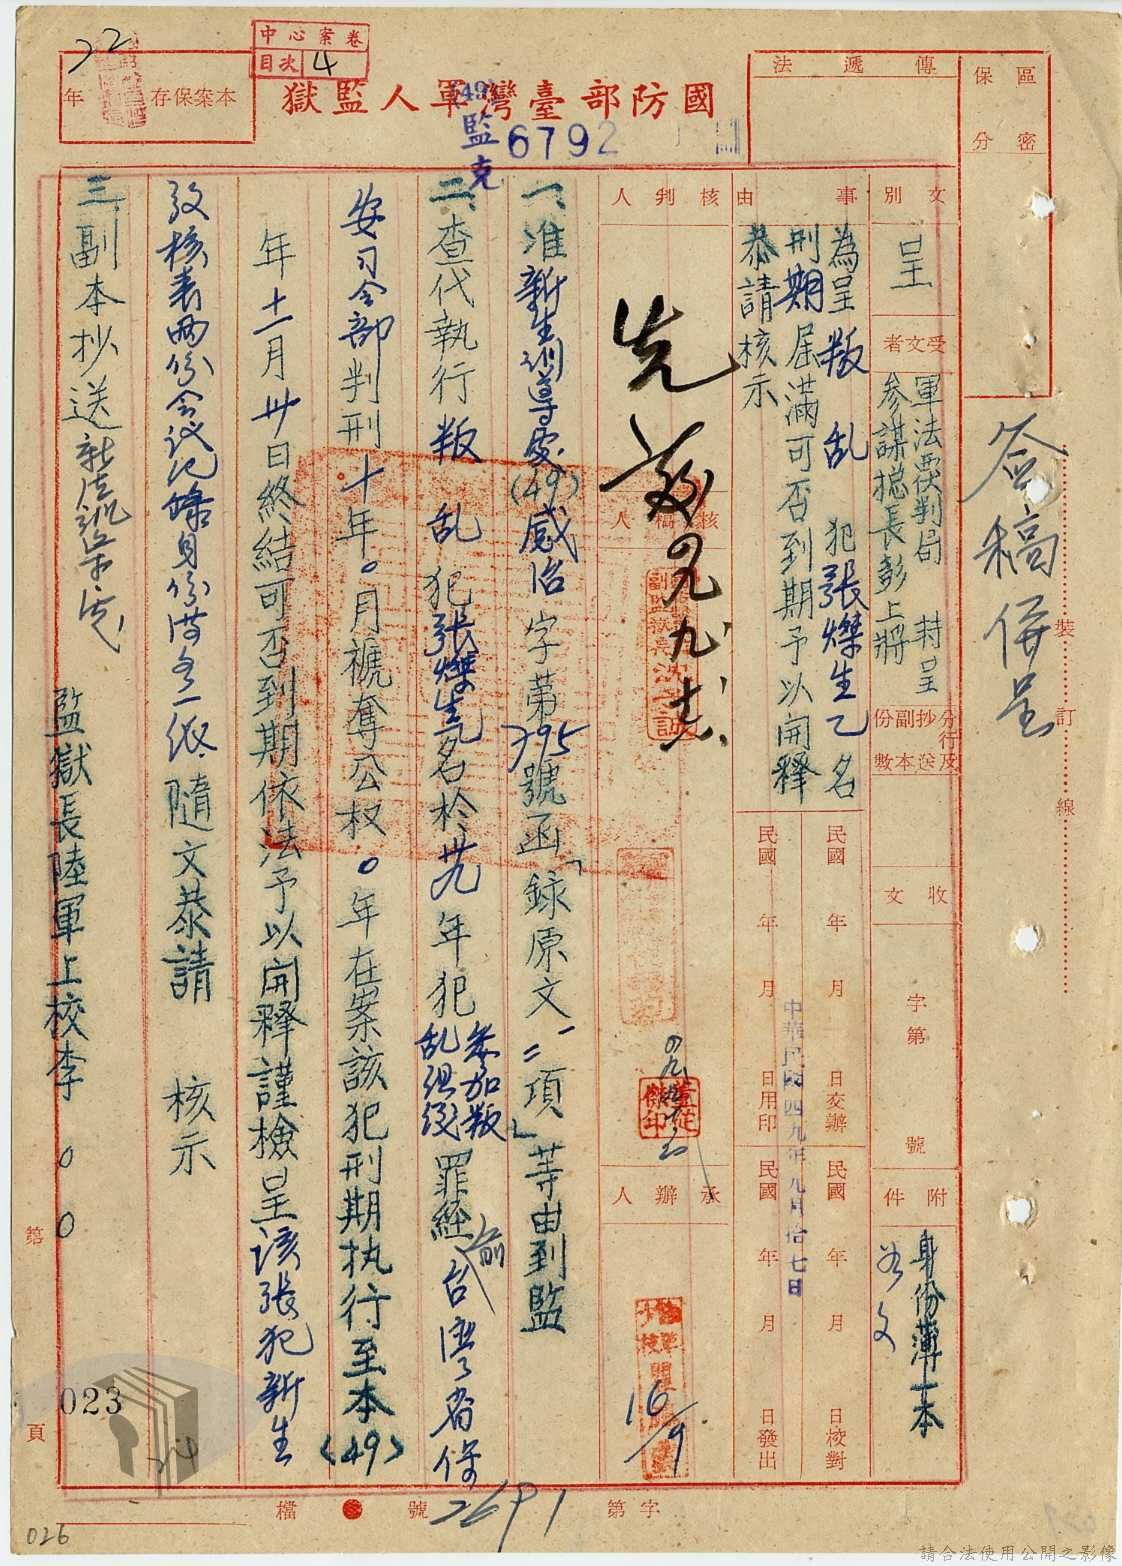 中心案卷
目次 4
國防部臺灣軍人監獄
(49)監克6792
本案保存 年
傳遞法
區分
保密
簽稿併呈
裝 訂 線
文別
呈
受文者
軍法覆判局
參謀總長彭上將
封呈
分行及抄送副本份數
收文
字第 號
附件
身份簿一本
如文
事由
為呈叛亂犯張燦生乙名
刑期屆滿可否到期予以開釋
恭請核示
民國 年 月 日交辦
民國 年 月 日校對
民國 年 月 日用印
民國 年 月 日發出
中華民國四九年九月拾七日
核判人
核稿人
承辦人
16/9
一、准新生訓導處(49)感治字第795號函「錄原文一二項」等由到監
二、查代執行叛亂犯張燦生乙名於卅九年犯參加叛亂組織罪經前台灣省保
安司令部判刑十年。月褫奪公权。年在案該犯刑期执行至本(49)
年十一月卅日終結可否到期依法予以開釋謹檢呈該張犯新生
考核表兩份會議紀錄身份簿各一份隨文恭請 核示
三、副本抄送新生訓導處
監獄長陸軍上校李○○
第 頁
023
字第 號 檔
026
請合法使用公開之影像